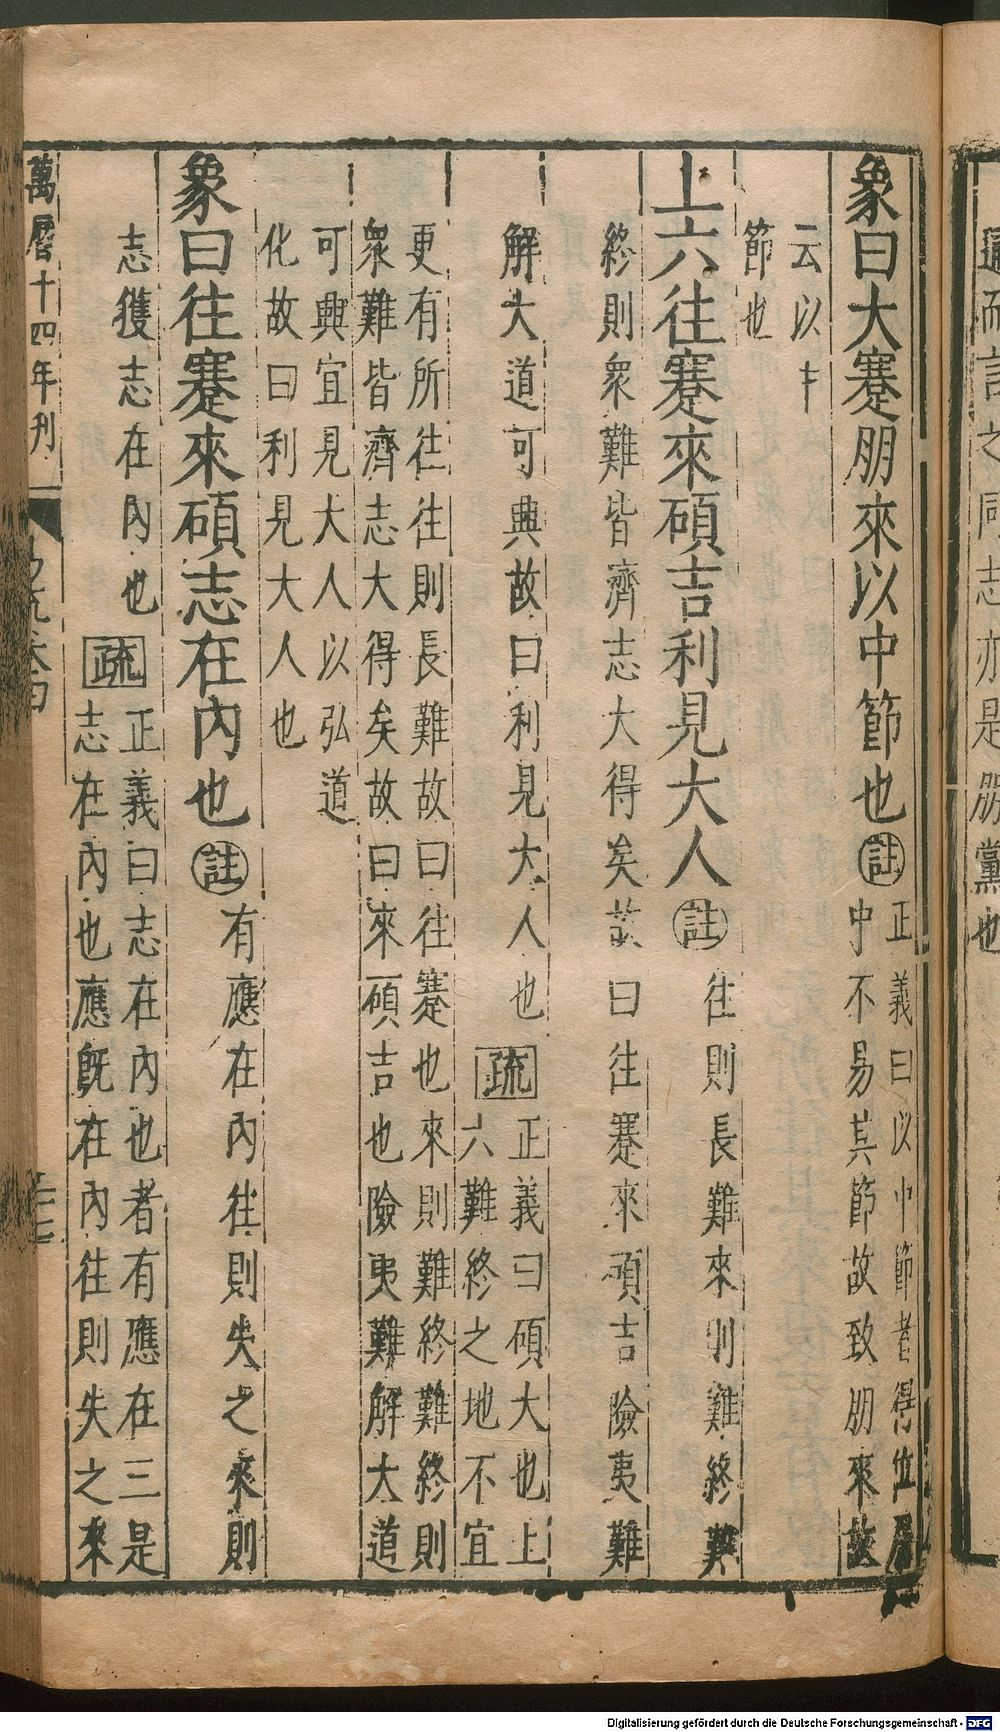 象曰大蹇朋來以中節也註正義曰以中節者得位居
中不易其節故致朋來故
云以中
節也
上六往蹇來碩吉利見大人註往則長難來則難終難
終則衆難皆濟志大得矣故曰往蹇來碩吉險夷難
解大道可興故曰利見大人也疏正義曰碩大也上
六難終之地不宜
更有所往往則長難故曰往蹇也來則難終難終則
衆難皆濟志大得矣故曰來碩吉也險夷難解大道
可興宜見大人以弘道
化故曰利見大人也
象曰往蹇來碩志在內也註有應在內往則失之來則
志獲志在內也疏正義曰志在內也者有應在三是
志在內也應旣在內往則失之來
萬曆十四年刋
易疏卷四
通而言之同志亦是朋黨也
Digitalisierung gefördert durch die Deutsche Forschungsgemeinschaft - DFG